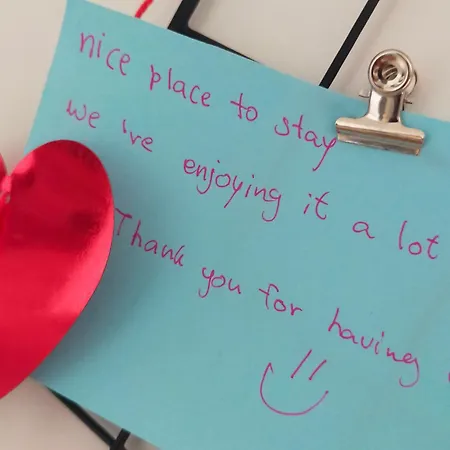 nice place to stay
we 've enjoying it a lot
Thank you for having